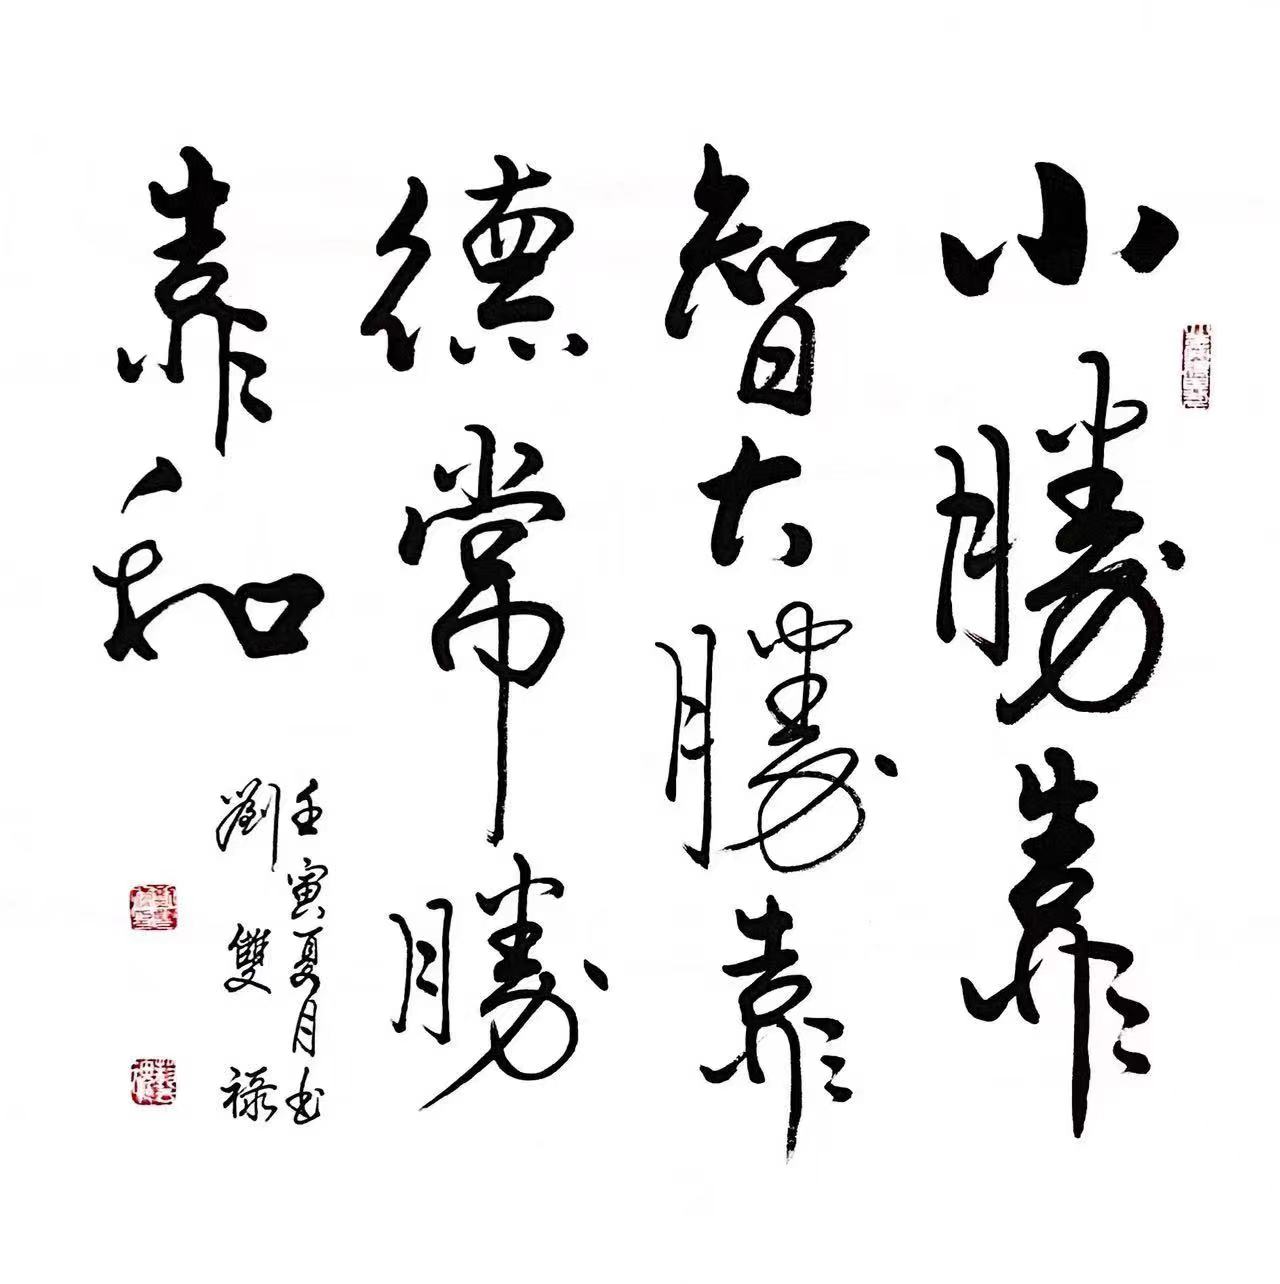 小勝靠
智大勝靠
德常勝
靠和
壬寅夏月书
劉雙禄